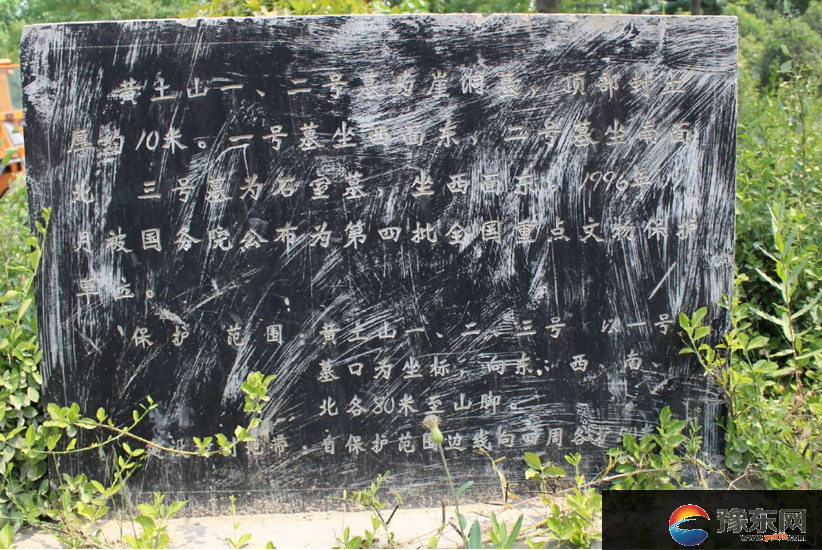 黄土山一、二号墓为崖洞墓，顶部封土
厚约10米。一号墓坐西面东，二号墓坐南面
北 三号墓为石室墓，坐西面东。1996年
月被国务院公布为第四批全国重点文物保护
单位。
保护 范围 黄土山一、二、三号 以一号
墓口为坐标，向东、西、南、
北各80米至山脚。
地带 自保护范围边线向四周各
豫东网